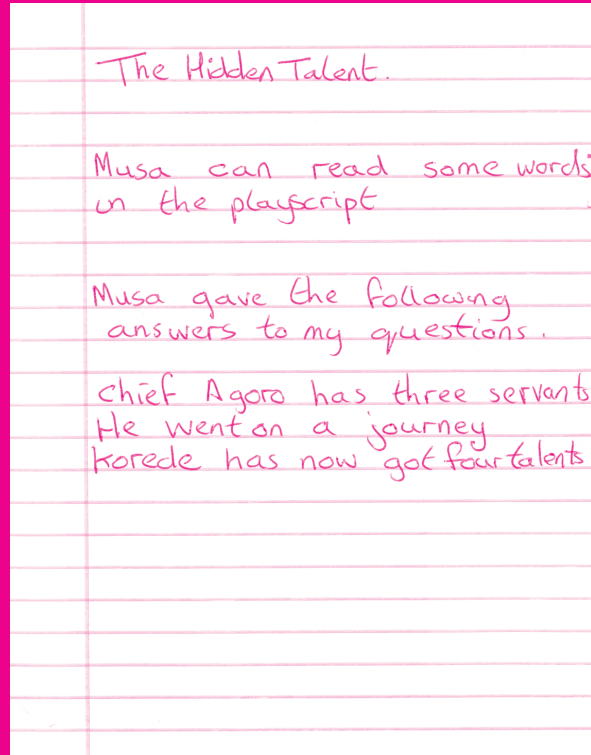 The Hidden Talent.
Musa can read some words
in the playscript
Musa gave the following
answers to my questions.
Chief Agoro has three servants
He went on a journey
Korede has now got four talents